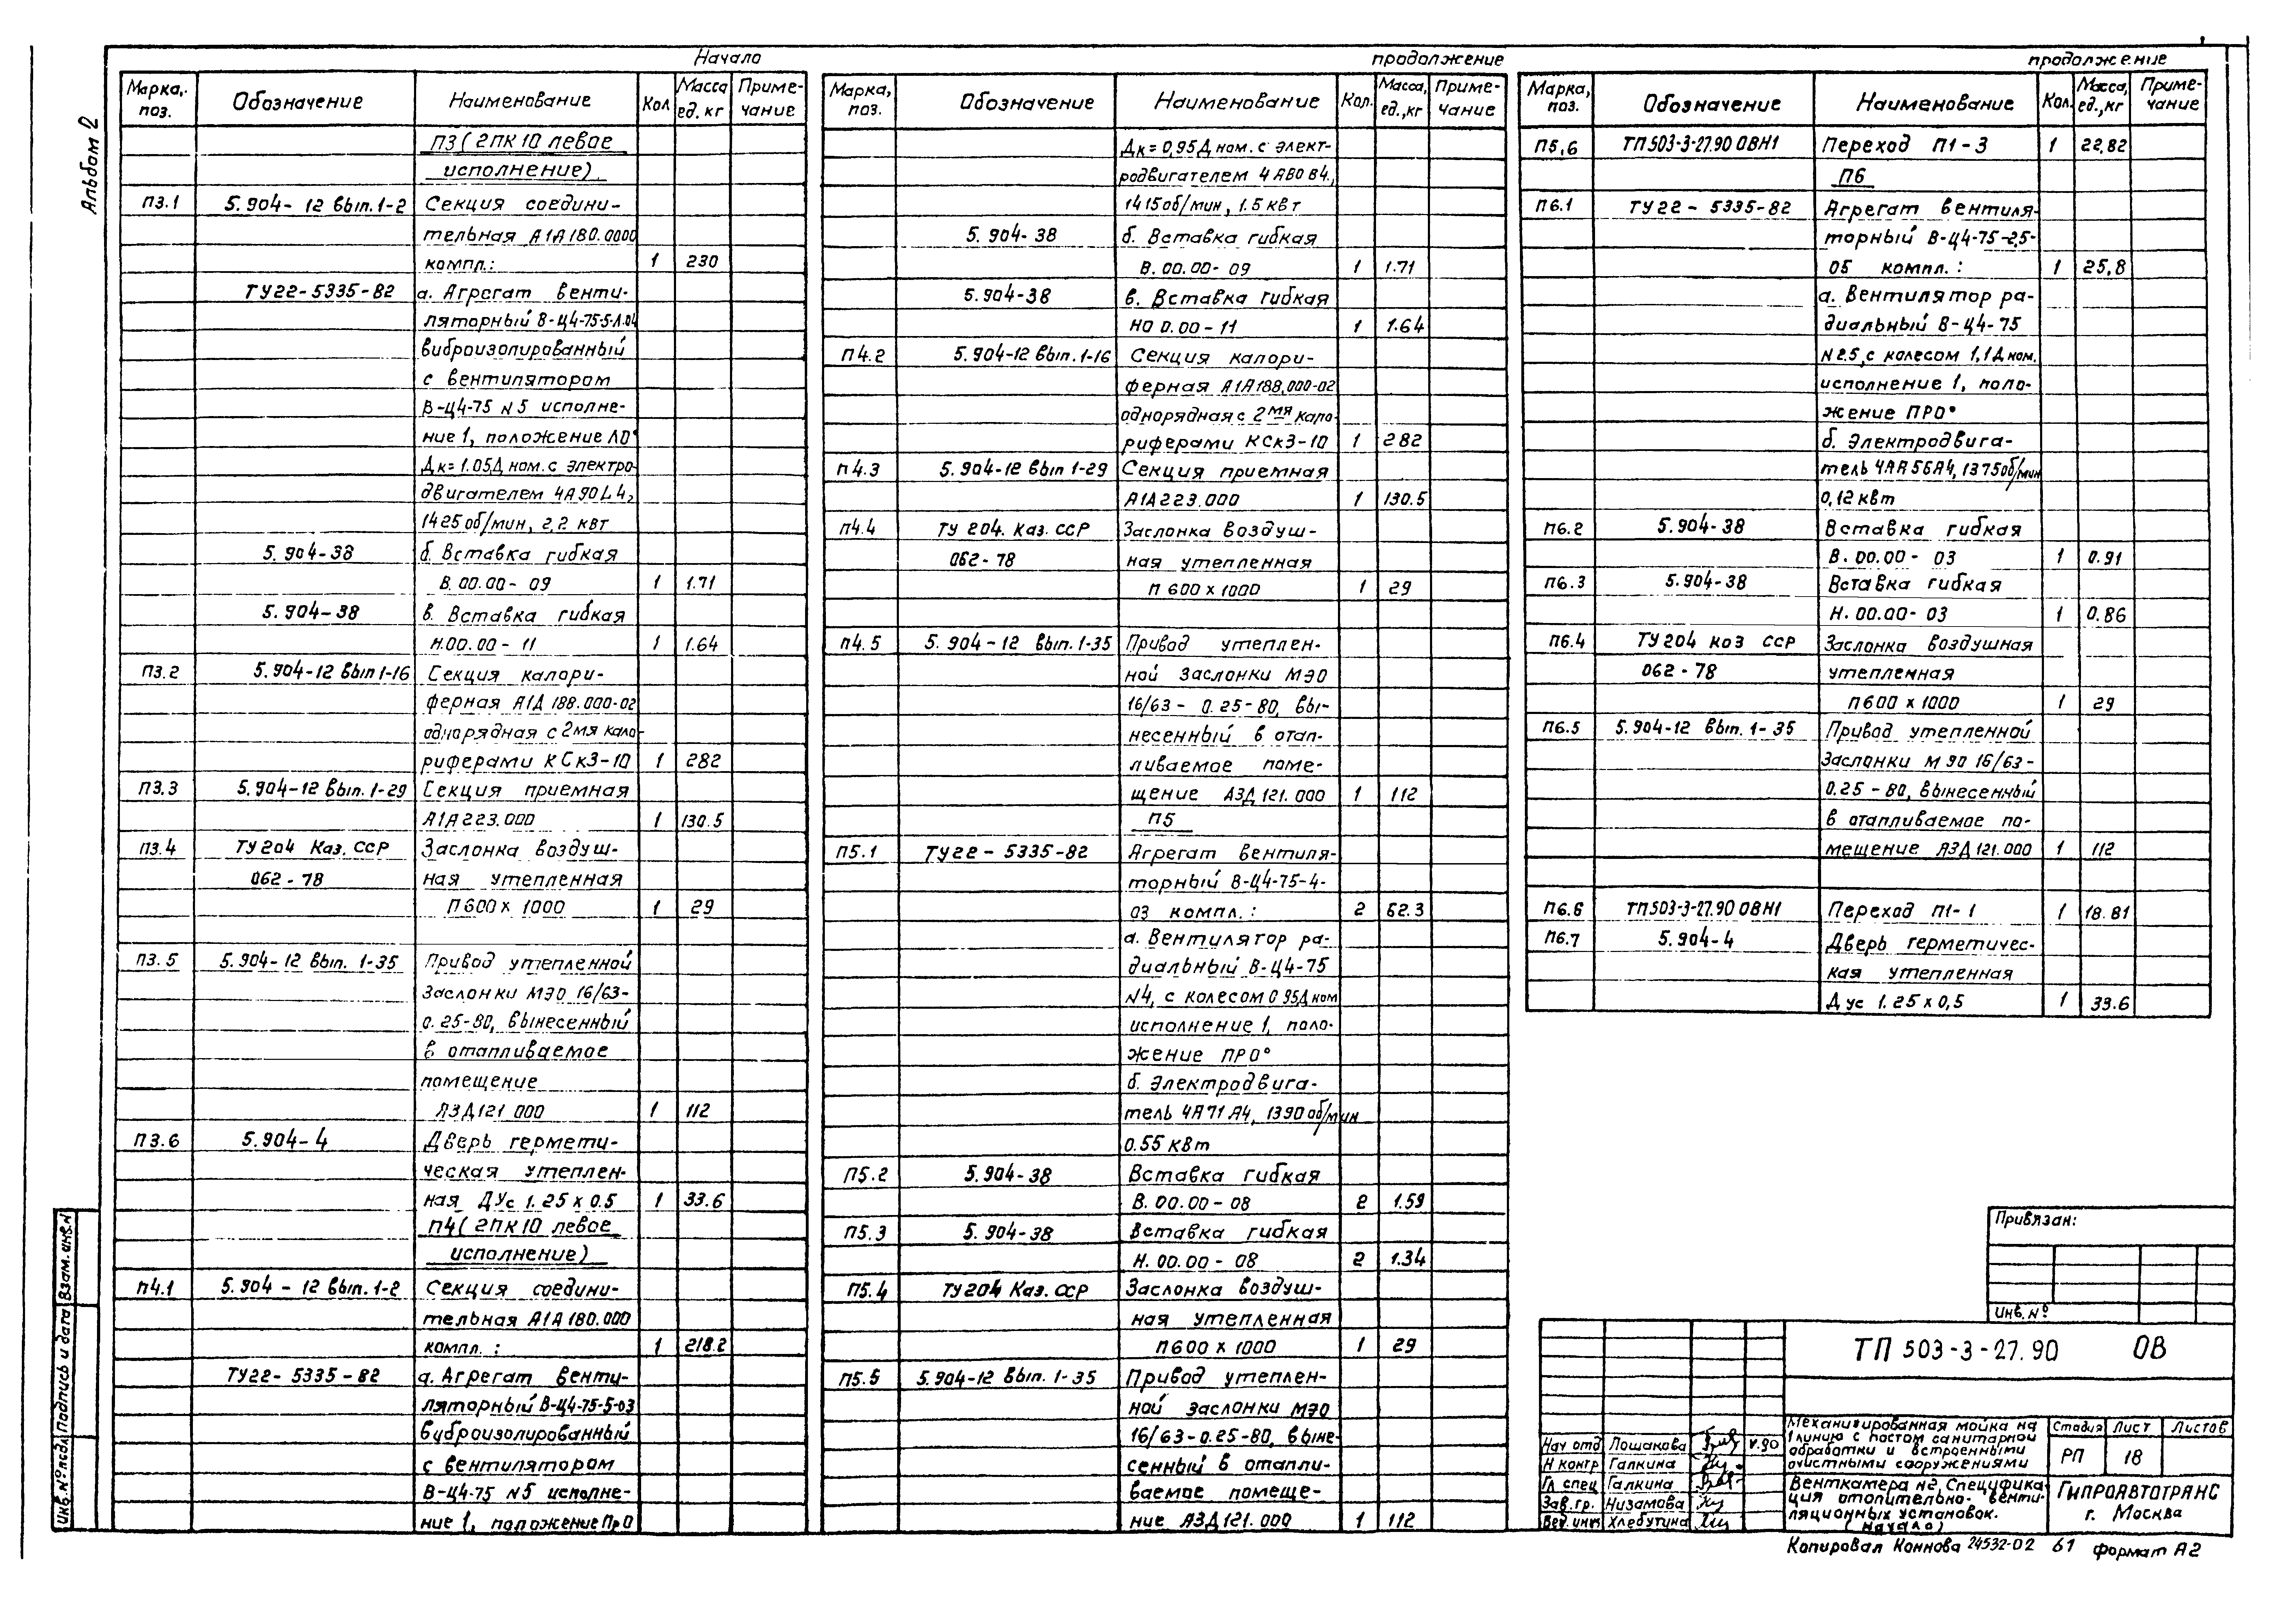 Альбом 2
Начало
Марка, поз. Обозначение Наименование Кол Масса ед. кг Приме-чание
П3 (2ПК10 левое
исполнение).
П3.1 5.904-12 вып.1-2 Секция соедини-
тельная А1А180.0000
компл.: 1 230
ТУ22-5335-82 а. Агрегат венти-
ляторный В-Ц4-75-5-Л.04
виброизолированный
с вентилятором
В-Ц4-75 №5 исполне-
ние 1, положение Л0°
Дк=1.05Д ном. с электро-
двигателем 4А90L4,
1425 об/мин, 2,2 квт
5.904-38 б. Вставка гибкая
В.00.00-09 1 1.71
5.904-38 в. Вставка гибкая
Н.00.00-11 1 1.64
П3.2 5.904-12 вып 1-16 Секция калори-
ферная А1Д 188.000-02
однорядная с 2мя кало-
риферами КСк3-10 1 282
П3.3 5.904-12 вып. 1-29 Секция приемная
А1А223.000 1 130.5
П3.4 ТУ204 Каз. ССР Заслонка воздуш-
062-78 ная утепленная
П600 х 1000 1 29
П3.5 5.904-12 вып. 1-35 Привод утепленной
Заслонки МЭО 16/63-
0.25-80, вынесенный
в отапливаемое
помещение
АЗД121.000 1 112
П3.6 5.904-4 Дверь гермети-
ческая утеплен-
ная ДУс 1.25 х 0.5 1 33.6
П4 (2ПК10 левое
исполнение)
П4.1 5.904-12 вып. 1-2 Секция соедини-
тельная А1А180.000
компл.: 1 218.2
ТУ22-5335-82 а. Агрегат венти-
ляторный В-Ц4-75-5-03
виброизолированный
с вентилятором
В-Ц4-75 №5 исполне-
ние 1, положение Пр0
продолжение
Марка, поз. Обозначение Наименование Кол. Масса, ед., кг Приме-чание
Дк=0,95Д ном. с элект-
родвигателем 4АВ0В4,
1415 об/мин, 1.5 квт
5.904-38 б. Вставка гибкая
В.00.00-09 1 1.71
5.904-38 в. Вставка гибкая
Н0 0.00-11 1 1.64
П4.2 5.904-12 вып. 1-16 Секция калори-
ферная А1А188,000-02
однорядная с 2мя кало-
риферами КСк3-10 1 282
П4.3 5.904-12 вып 1-29 Секция приемная
А1А223.000 1 130.5
П4.4 ТУ 204. Каз. ССР Заслонка воздуш-
062-78 ная утепленная
П 600 х 1000 1 29
П4.5 5.904-12 вып. 1-35 Привод утеплен-
ной заслонки МЭО
16/63-0.25-80, вы-
несенный в отап-
ливаемое поме-
щение АЗД121.000 1 112
П5
П5.1 ТУ22-5335-82 Агрегат вентиля-
торный В-Ц4-75-4-
03 компл.: 2 62.3
а. Вентилятор ра-
диальный В-Ц4-75
№4, с колесом 0 95Д ном
исполнение 1, поло-
жение ПР0°
б. Электродвига-
тель 4А71А4, 1390 об/мин
0.55 квт
П5.2 5.904-38 Вставка гибкая
В.00.00-08 2 1.59
П5.3 5.904-38 Вставка гибкая
Н.00.00-08 2 1.34
П5.4 ТУ204 Каз. ССР Заслонка воздуш-
ная утепленная
П600 х 1000 1 29
П5.5 5.904-12 вып. 1-35 Привод утеплен-
ной заслонки МЭО
16/63-0.25-80, выне-
сенный в отапли-
ваемое помеще-
ние АЗД121.000 1 112
продолжение
Марка, поз. Обозначение Наименование Кол. Масса, ед., кг Приме-чание
П5,6 ТП503-3-27.90 ОВН1 Переход П1-3 1 22,82
П6
П6.1 ТУ22-5335-82 Агрегат вентиля-
торный В-Ц4-75-2,5-
05 компл.: 1 25,8
а. Вентилятор ра-
диальный В-Ц4-75
№2.5, с колесом 1,1Д ном.
исполнение 1, поло-
жение ПР0°
б. Электродвига-
тель 4АА56А4, 1375 об/мин
0,12 квт
П6.2 5.904-38 Вставка гибкая
В.00.00-03 1 0.91
П6.3 5.904-38 Вставка гибкая
Н.00.00-03 1 0.86
П6.4 ТУ204 Коз ССР Заслонка воздушная
062-78 утепленная
П600 х 1000 1 29
П6.5 5.904-12 вып. 1-35 Привод утепленной
Заслонки МЭО 16/63-
0.25-80, вынесенный
в отапливаемое по-
мещение АЗД121.000 1 112
П6.6 ТП503-3-27.90 ОВН1 Переход П1-1 1 18.81
П6.7 5.904-4 Дверь герметичес-
кая утепленная
Дус 1.25 х 0,5 1 33.6
Привязан:
Инв. №
ТП 503-3-27.90 ОВ
Механизированная мойка на
1 линию с постом санитарной
обработки и встроенными
очистными сооружениями
Стадия Лист Листов
РП 18
Венткамера №2, Специфика-
ция отопительно-венти-
ляционных установок.
(начало)
ГИПРОАВТОТРАНС
г. Москва
Нач отд Лошакова V.90
Н контр Галкина
Гл спец Галкина
Зав. гр. Низамова
Вед. инж Хлебутина
Инв. № подл. Подпись и дата Взам. инв. №
Копировал Коннова 24532-02 61 формат А2